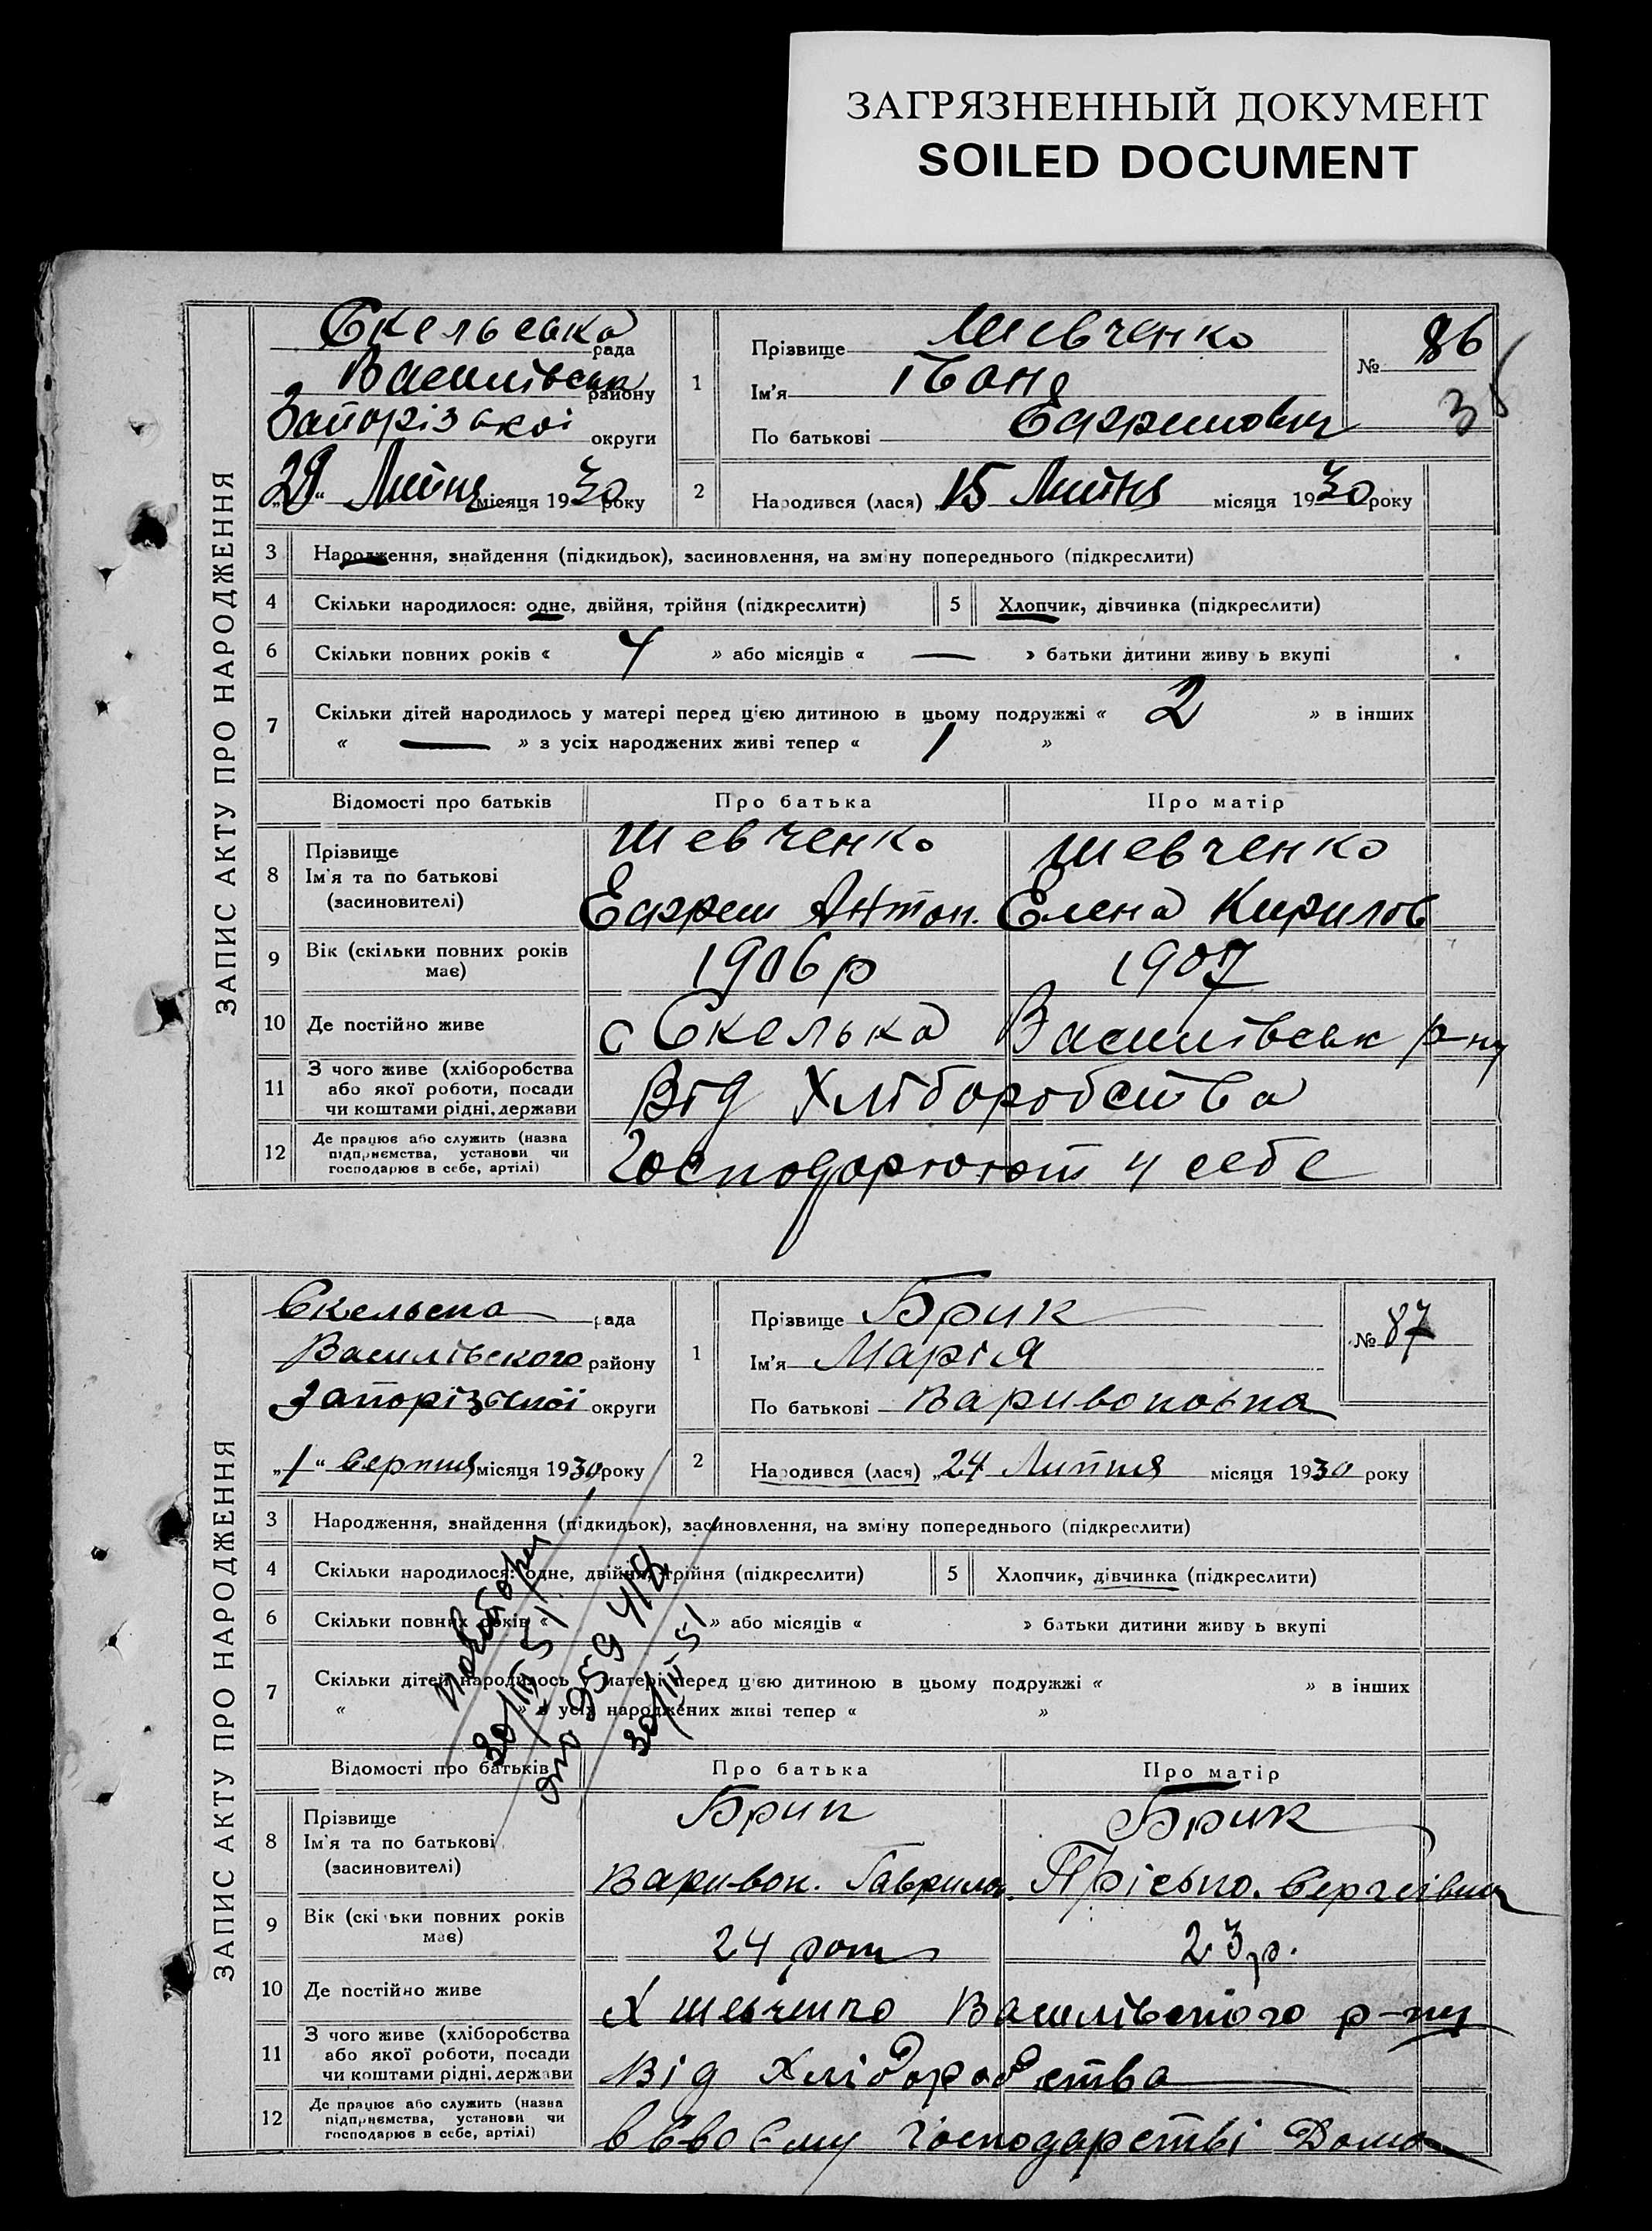 ЗАГРЯЗНЕННЫЙ ДОКУМЕНТ
SOILED DOCUMENT
ЗАПИС АКТУ ПРО НАРОДЖЕННЯ
Скельська рада
Василівськ району
Запорізької округи
„29“ Липня місяця 1930 року
1 Прізвище Шевченко
Ім'я Іван
По батькові Ефремович
№ 86
2 Народився (лася) „15 Липня місяця 1930 року
3 Народження, знайдення (підкидьок), засиновлення, на зміну попереднього (підкреслити)
4 Скільки народилося: одне, двійня, трійня (підкреслити) 5 Хлопчик, дівчинка (підкреслити)
6 Скільки повних років « 4 » або місяців « — » батьки дитини живу ь вкупі
7 Скільки дітей народилось у матері перед цією дитиною в цьому подружжі « 2 » в інших
« — » з усіх народжених живі тепер « 1 »
Відомості про батьків Про батька Про матір
8 Прізвище
Ім'я та по батькові
(засиновителі)
Шевченко Шевченко
Ефрем Антон. Елена Кирилов
9 Вік (скільки повних років має) 1906 р 1907
10 Де постійно живе с Скелька Василівськ р-ну
11 З чого живе (хліборобства
або якої роботи, посади
чи коштами рідні, держави
Від Хліборобства
12 Де працює або служить (назва
підприємства, установи чи
господарює в себе, артілі)
Господорюют у себе
ЗАПИС АКТУ ПРО НАРОДЖЕННЯ
Скельська рада
Василівського району
Запорізької округи
„1“ Серпня місяця 1930 року
1 Прізвище Брик
Ім'я Марія
По батькові Варивоновна
№ 87
2 Народився (лася) „24 Липня місяця 1930 року
3 Народження, знайдення (підкидьок), засиновлення, на зміну попереднього (підкреслити)
4 Скільки народилося: одне, двійня, трійня (підкреслити) 5 Хлопчик, дівчинка (підкреслити)
6 Скільки повних років « » або місяців « » батьки дитини живу ь вкупі
7 Скільки дітей народилось у матері перед цією дитиною в цьому подружжі « » в інших
« » з усіх народжених живі тепер « »
Відомості про батьків Про батька Про матір
8 Прізвище
Ім'я та по батькові
(засиновителі)
Брик Брик
Варивон. Гаврилов. Сергеівна
9 Вік (скі ьки повних років має) 24 рот 23 р.
10 Де постійно живе Х Шевченко Василівского р-ну
11 З чого живе (хліборобства
або якої роботи, посади
чи коштами рідні, держави
Від Хліборобства
12 Де працює або служить (назва
підприємства, установи чи
господарює в себе, артілі)
в своєму господарстві Дома